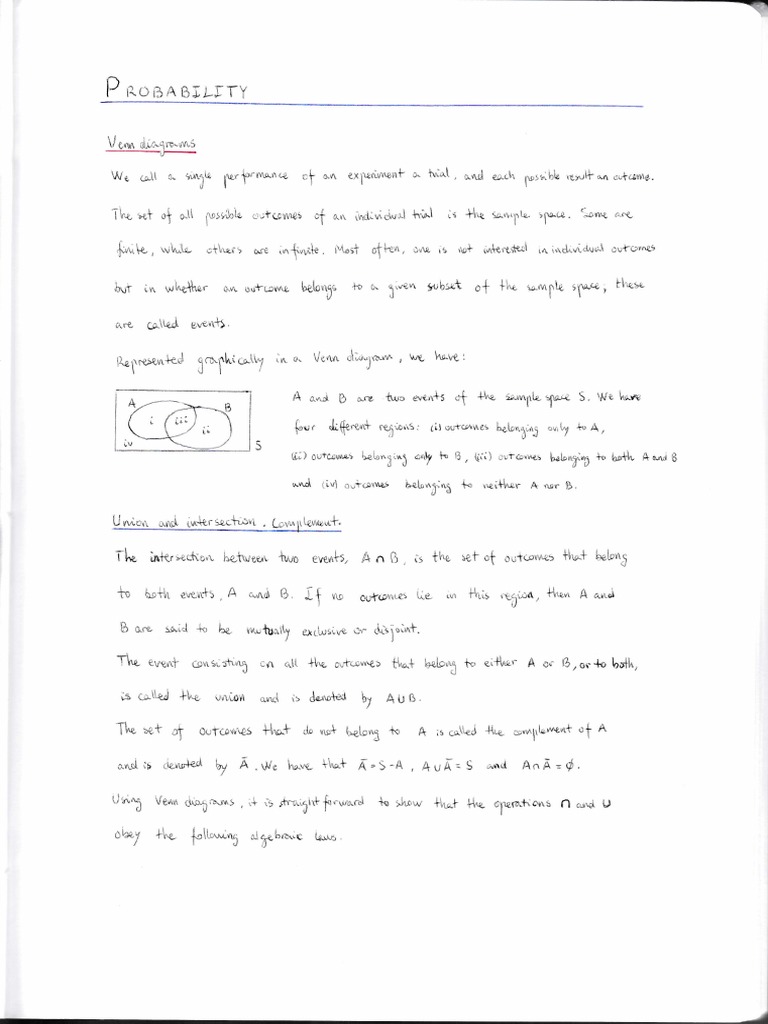 PROBABILITY
Venn diagrams
We call a single performance of an experiment a trial, and each possible result an outcome.
The set of all possible outcomes of an individual trial is the sample space. Some are
finite, while others are infinite. Most often, one is not interested in individual outcomes
but in whether an outcome belongs to a given subset of the sample space; these
are called events.
Represented graphically in a Venn diagram, we have:
A B i iii ii iv S
A and B are two events of the sample space S. We have
four different regions: (i) outcomes belonging only to A,
(ii) outcomes belonging only to B, (iii) outcomes belonging to both A and B
and (iv) outcomes belonging to neither A nor B.
Union and intersection. Complement.
The intersection between two events, A∩B, is the set of outcomes that belong
to both events, A and B. If no outcomes lie in this region, then A and
B are said to be mutually exclusive or disjoint.
The event consisting on all the outcomes that belong to either A or B, or to both,
is called the union and is denoted by A∪B.
The set of outcomes that do not belong to A is called the complement of A
and is denoted by Ā. We have that Ā = S-A, A∪Ā = S and A∩Ā = ∅.
Using Venn diagrams, it is straightforward to show that the operations ∩ and ∪
obey the following algebraic laws.